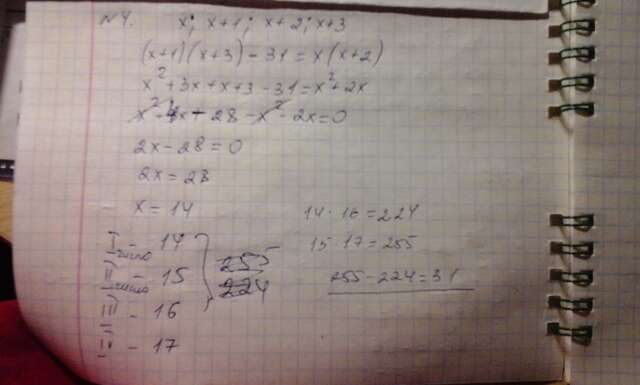 N4. x; x+1; x+2; x+3
(x+1)(x+3) - 31 = x(x+2)
x² + 3x + x + 3 - 31 = x² + 2x
x² + 4x - 28 - x² - 2x = 0
2x - 28 = 0
2x = 28
x = 14
14 · 16 = 224
15 · 17 = 255
255 - 224 = 31
I число - 14
II число - 15
III - 16
IV - 17
255
224